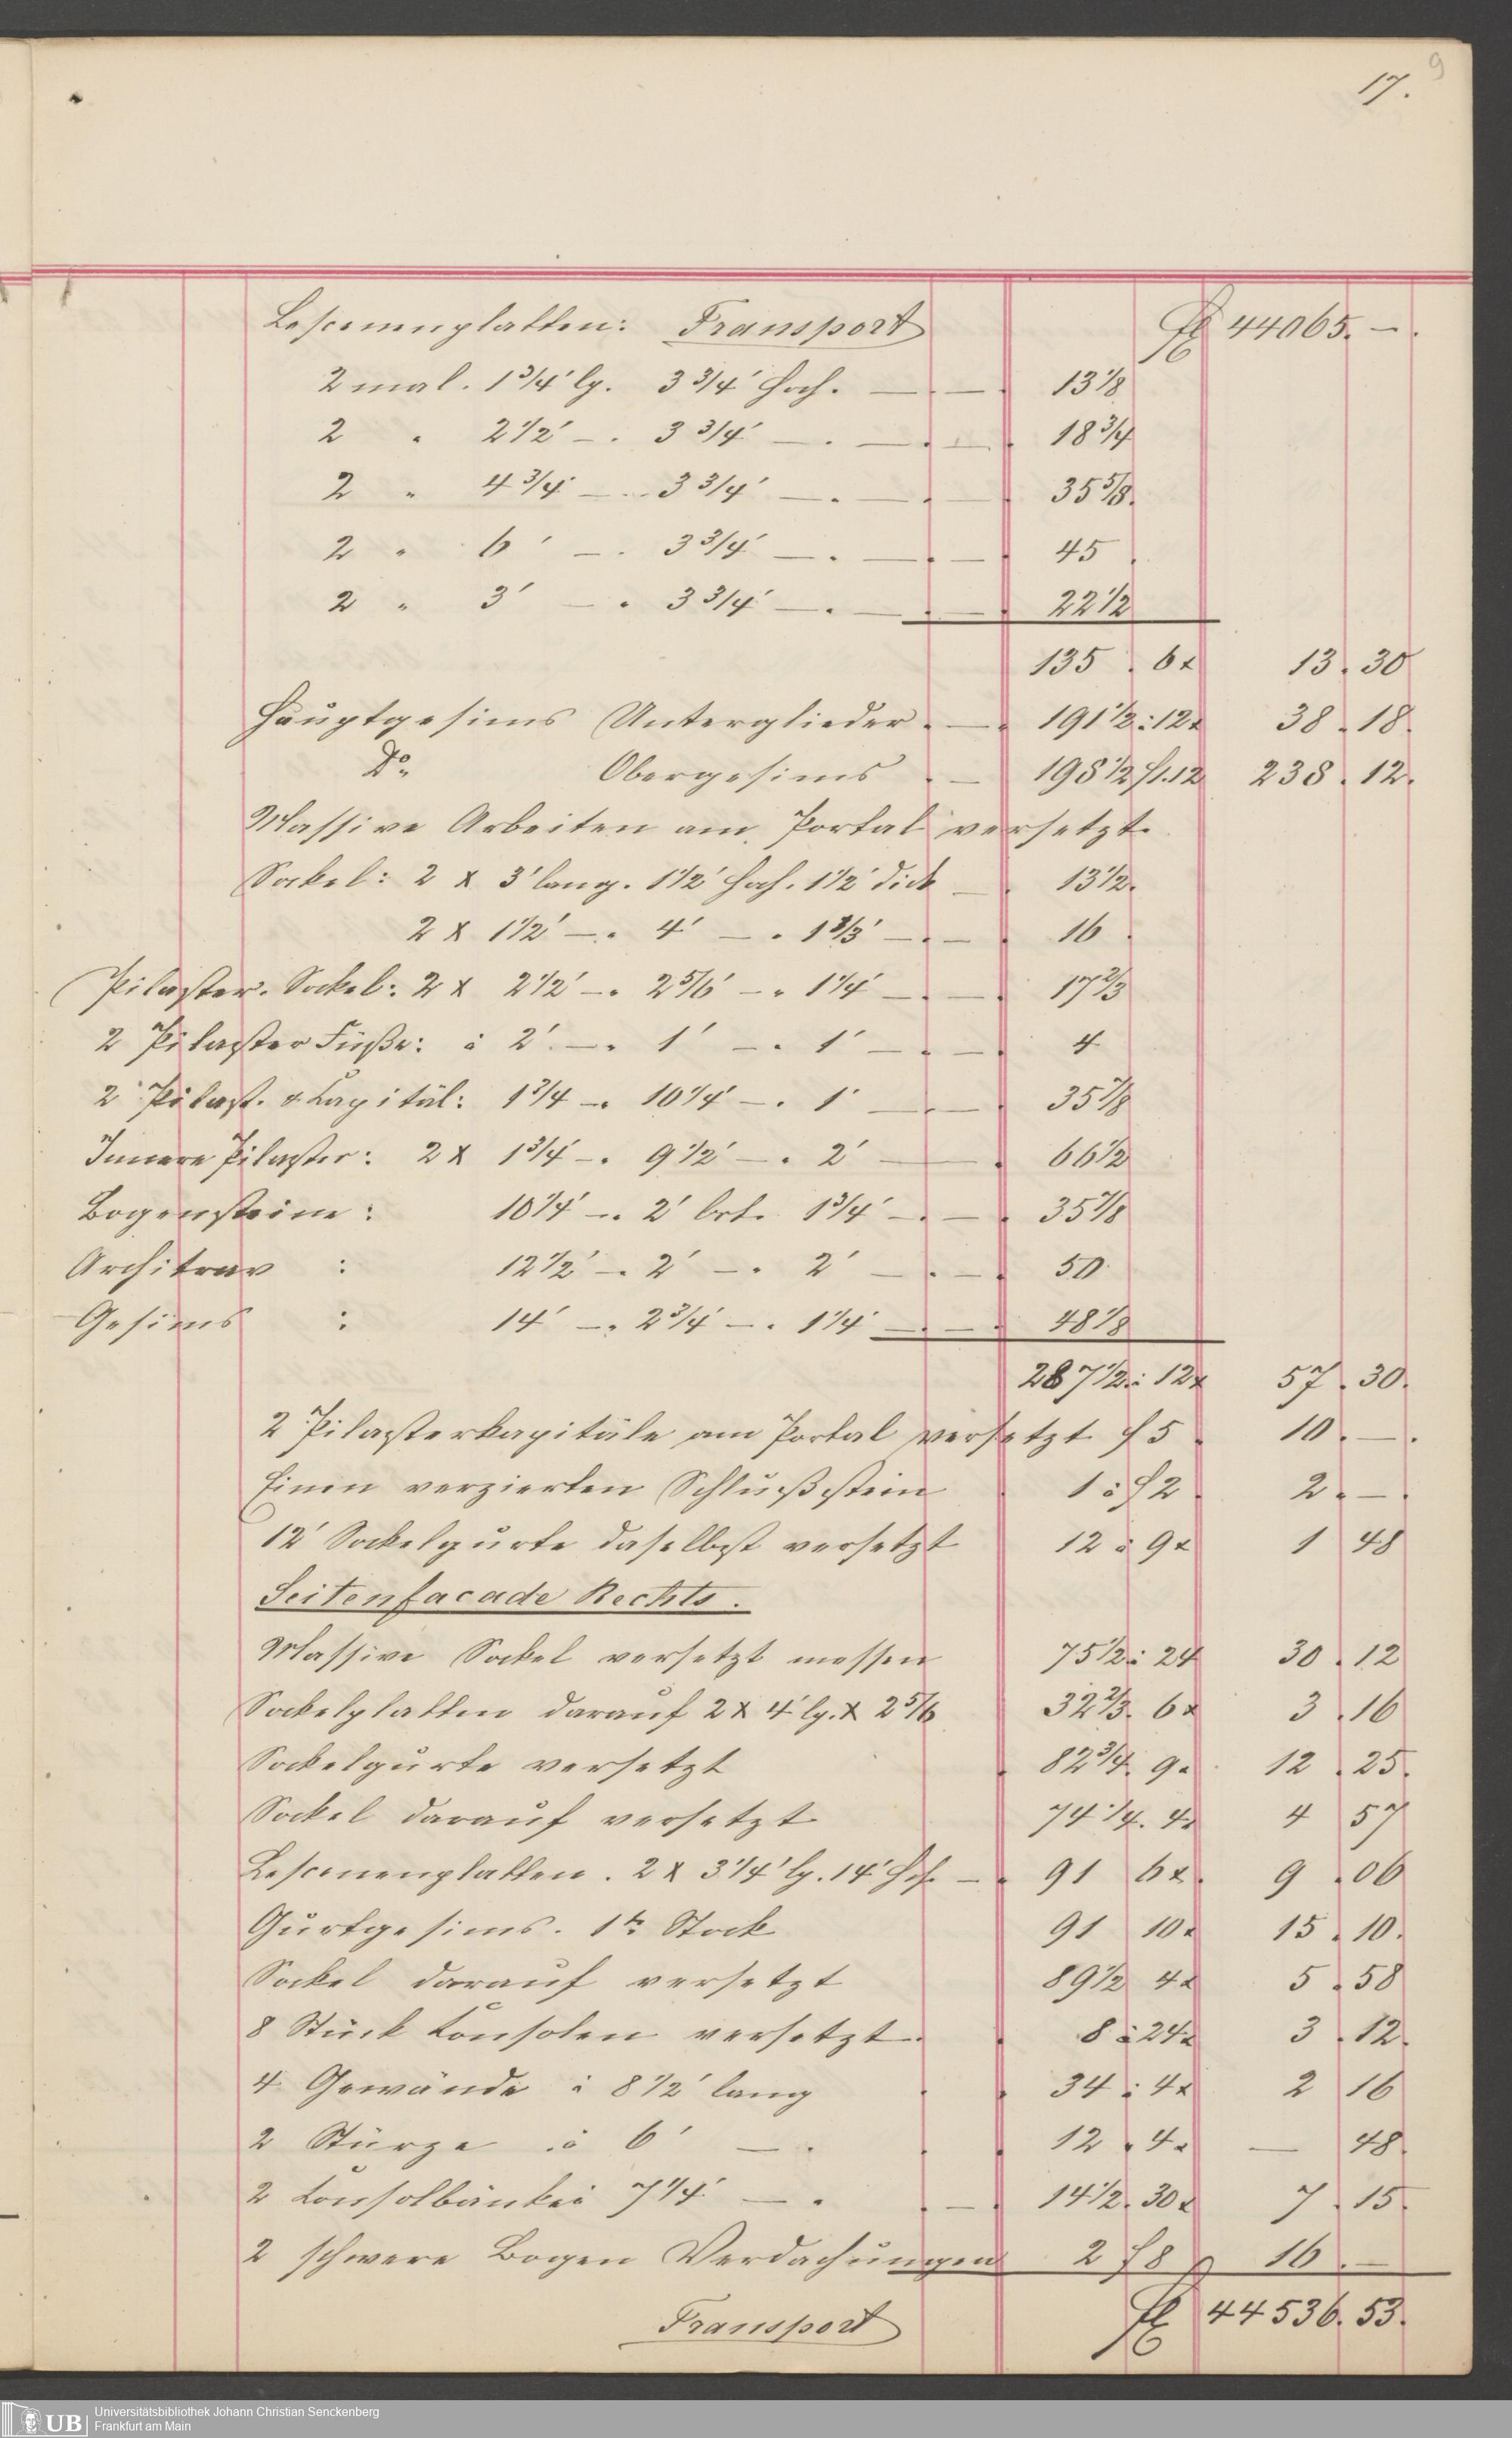 9
17.
Lescenenplatten: Transport fl 44065. – .
2 mal. 1 3/4' lg. 3 3/4' hoch. — . — . 13 1/8
2 " 2 1/2' – . 3 3/4' — . — . — . 18 3/4
2 " 4 3/4' – . 3 3/4' — . — . — . 35 5/8.
2 " 6' – . 3 3/4' — . — . — . 45 .
2 " 3' – . 3 3/4' — . — . — . 22 1/2
135 . 6x 13. 30
Hauptgesims Unterglieder . — . 191 1/2 à 12x 38. 18.
Do. Obergesims . — 198 1/2 f1.12 238. 12.
Massive Arbeiten am Portal versetzt.
Sockel: 2 x 3' lang. 1 1/2' hoch. 1 1/2' dick — . 13 1/2.
2 x 1 1/2' – . 4' — . 1 2/3' — . — . 16 .
Pilaster. Sockel: 2 x 2 1/2' – . 2 5/6' – . 1 1/4' — . — . 17 2/3
2 Pilaster Füße: à 2' — . 1' — . 1' — . — . 4
2 Pilast. & Kapitäl: 1 3/4 – . 10 1/4' – . 1' — . — . 35 7/8
Innere Pilaster: 2 x 1 3/4' – . 9 1/2' — . 2' — . 66 1/2
Bogensteine: 10 1/4' – . 2' brt. 1 3/4' — . — . 35 7/8
Architrav : 12 1/2' – . 2' — . 2' — . — . 50
Gesims : 14' – . 2 3/4' – . 1 1/4' — . — . 48 1/8
287 1/2 à 12x 57. 30.
2 Pilasterkapitäle am Portal versetzt f 5 . 10. — .
Einen verzierten Schlußstein 1 à f 2 . 2. — .
12' Sockelgurte daselbst versetzt 12 à 9x 1 48
Seitenfacade Rechts.
Massive Sockel versetzt messen 75 1/2 à 24 30. 12
Sockelplatten darauf 2 x 4' lg. x 2 5/6 32 2/3. 6x 3. 16
Sockelgurte versetzt . 82 3/4. 9x 12. 25.
Sockel darauf versetzt 74 1/4. 4x 4 57
Lescenenplatten. 2 x 3 1/4' lg. 14' hch. — . 91 6x. 9. 06
Gurtgesims. 1tr Stock 91 10x 15. 10.
Sockel darauf versetzt 89 1/2 4x 5. 58
8 Stück Konsolen versetzt. . 8 à 24x 3. 12.
4 Gewände à 8 1/2' lang . . 34 à 4x 2 16
2 Stürze à 6' — . . . 12 . 4x — 48.
2 Konsolbänke à 7 1/4' — . . — . 14 1/2. 30x 7. 15.
2 schwere Bogen Verdachungen 2 f 8 16. —
Transport fl 44536. 53.
UB Universitätsbibliothek Johann Christian Senckenberg
Frankfurt am Main